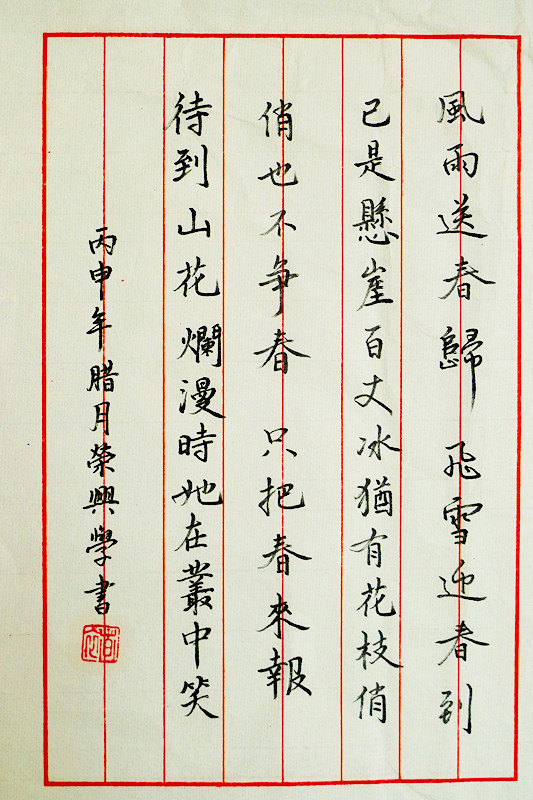 風雨送春歸 飛雪迎春到
已是懸崖百丈冰猶有花枝俏
俏也不爭春 只把春來報
待到山花爛漫時她在叢中笑
丙申年腊月榮興學書